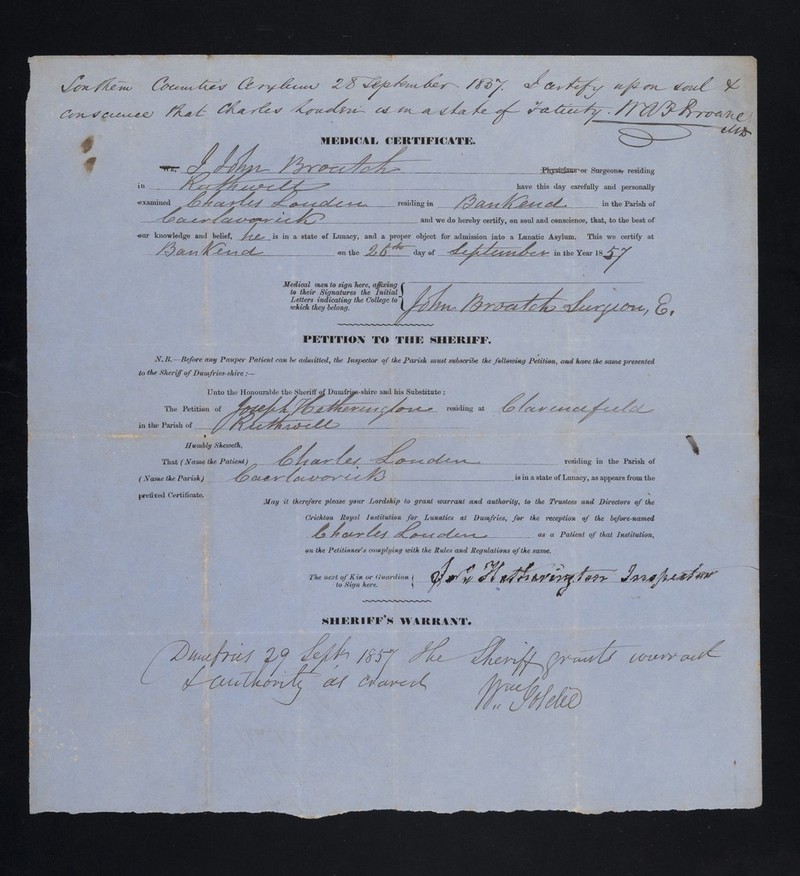 Southern Counties Asylum 28 September 1857. I certify upon soul &
conscience that Charles Louden is in a state of Fatuity. W A F Browne
MD
MEDICAL CERTIFICATE.
We, I John Broatch Physicians or Surgeons, residing
in Ruthwell have this day carefully and personally
examined Charles Louden residing in Bankend in the Parish of
Caerlavorick and we do hereby certify, on soul and conscience, that, to the best of
our knowledge and belief, he is in a state of Lunacy, and a proper object for admission into a Lunatic Asylum. This we certify at
Bankend on the 26th day of September in the Year 1857
Medical men to sign here, affixing
to their Signatures the Initial
Letters indicating the College to
which they belong.
John Broatch Surgeon, E.
PETITION TO THE SHERIFF.
N.B.—Before any Pauper Patient can be admitted, the Inspector of the Parish must subscribe the following Petition, and have the same presented
to the Sheriff of Dumfries-shire :—
Unto the Honourable the Sheriff of Dumfries-shire and his Substitute ;
The Petition of Joseph Hetherington residing at Clarencefield
in the Parish of Ruthwell
Humbly Sheweth,
That (Name the Patient) Charles Louden residing in the Parish of
(Name the Parish) Caerlavorick is in a state of Lunacy, as appears from the
prefixed Certificate.
May it therefore please your Lordship to grant warrant and authority, to the Trustees and Directors of the
Crichton Royal Institution for Lunatics at Dumfries, for the reception of the before-named
Charles Louden as a Patient of that Institution,
on the Petitioner's complying with the Rules and Regulations of the same.
The next of Kin or Guardian
to Sign here.
Jos. Hetherington Inspector
SHERIFF'S WARRANT.
Dumfries 29 Sept 1857 The Sheriff grants warrant
& authority as craved Wm Goldie